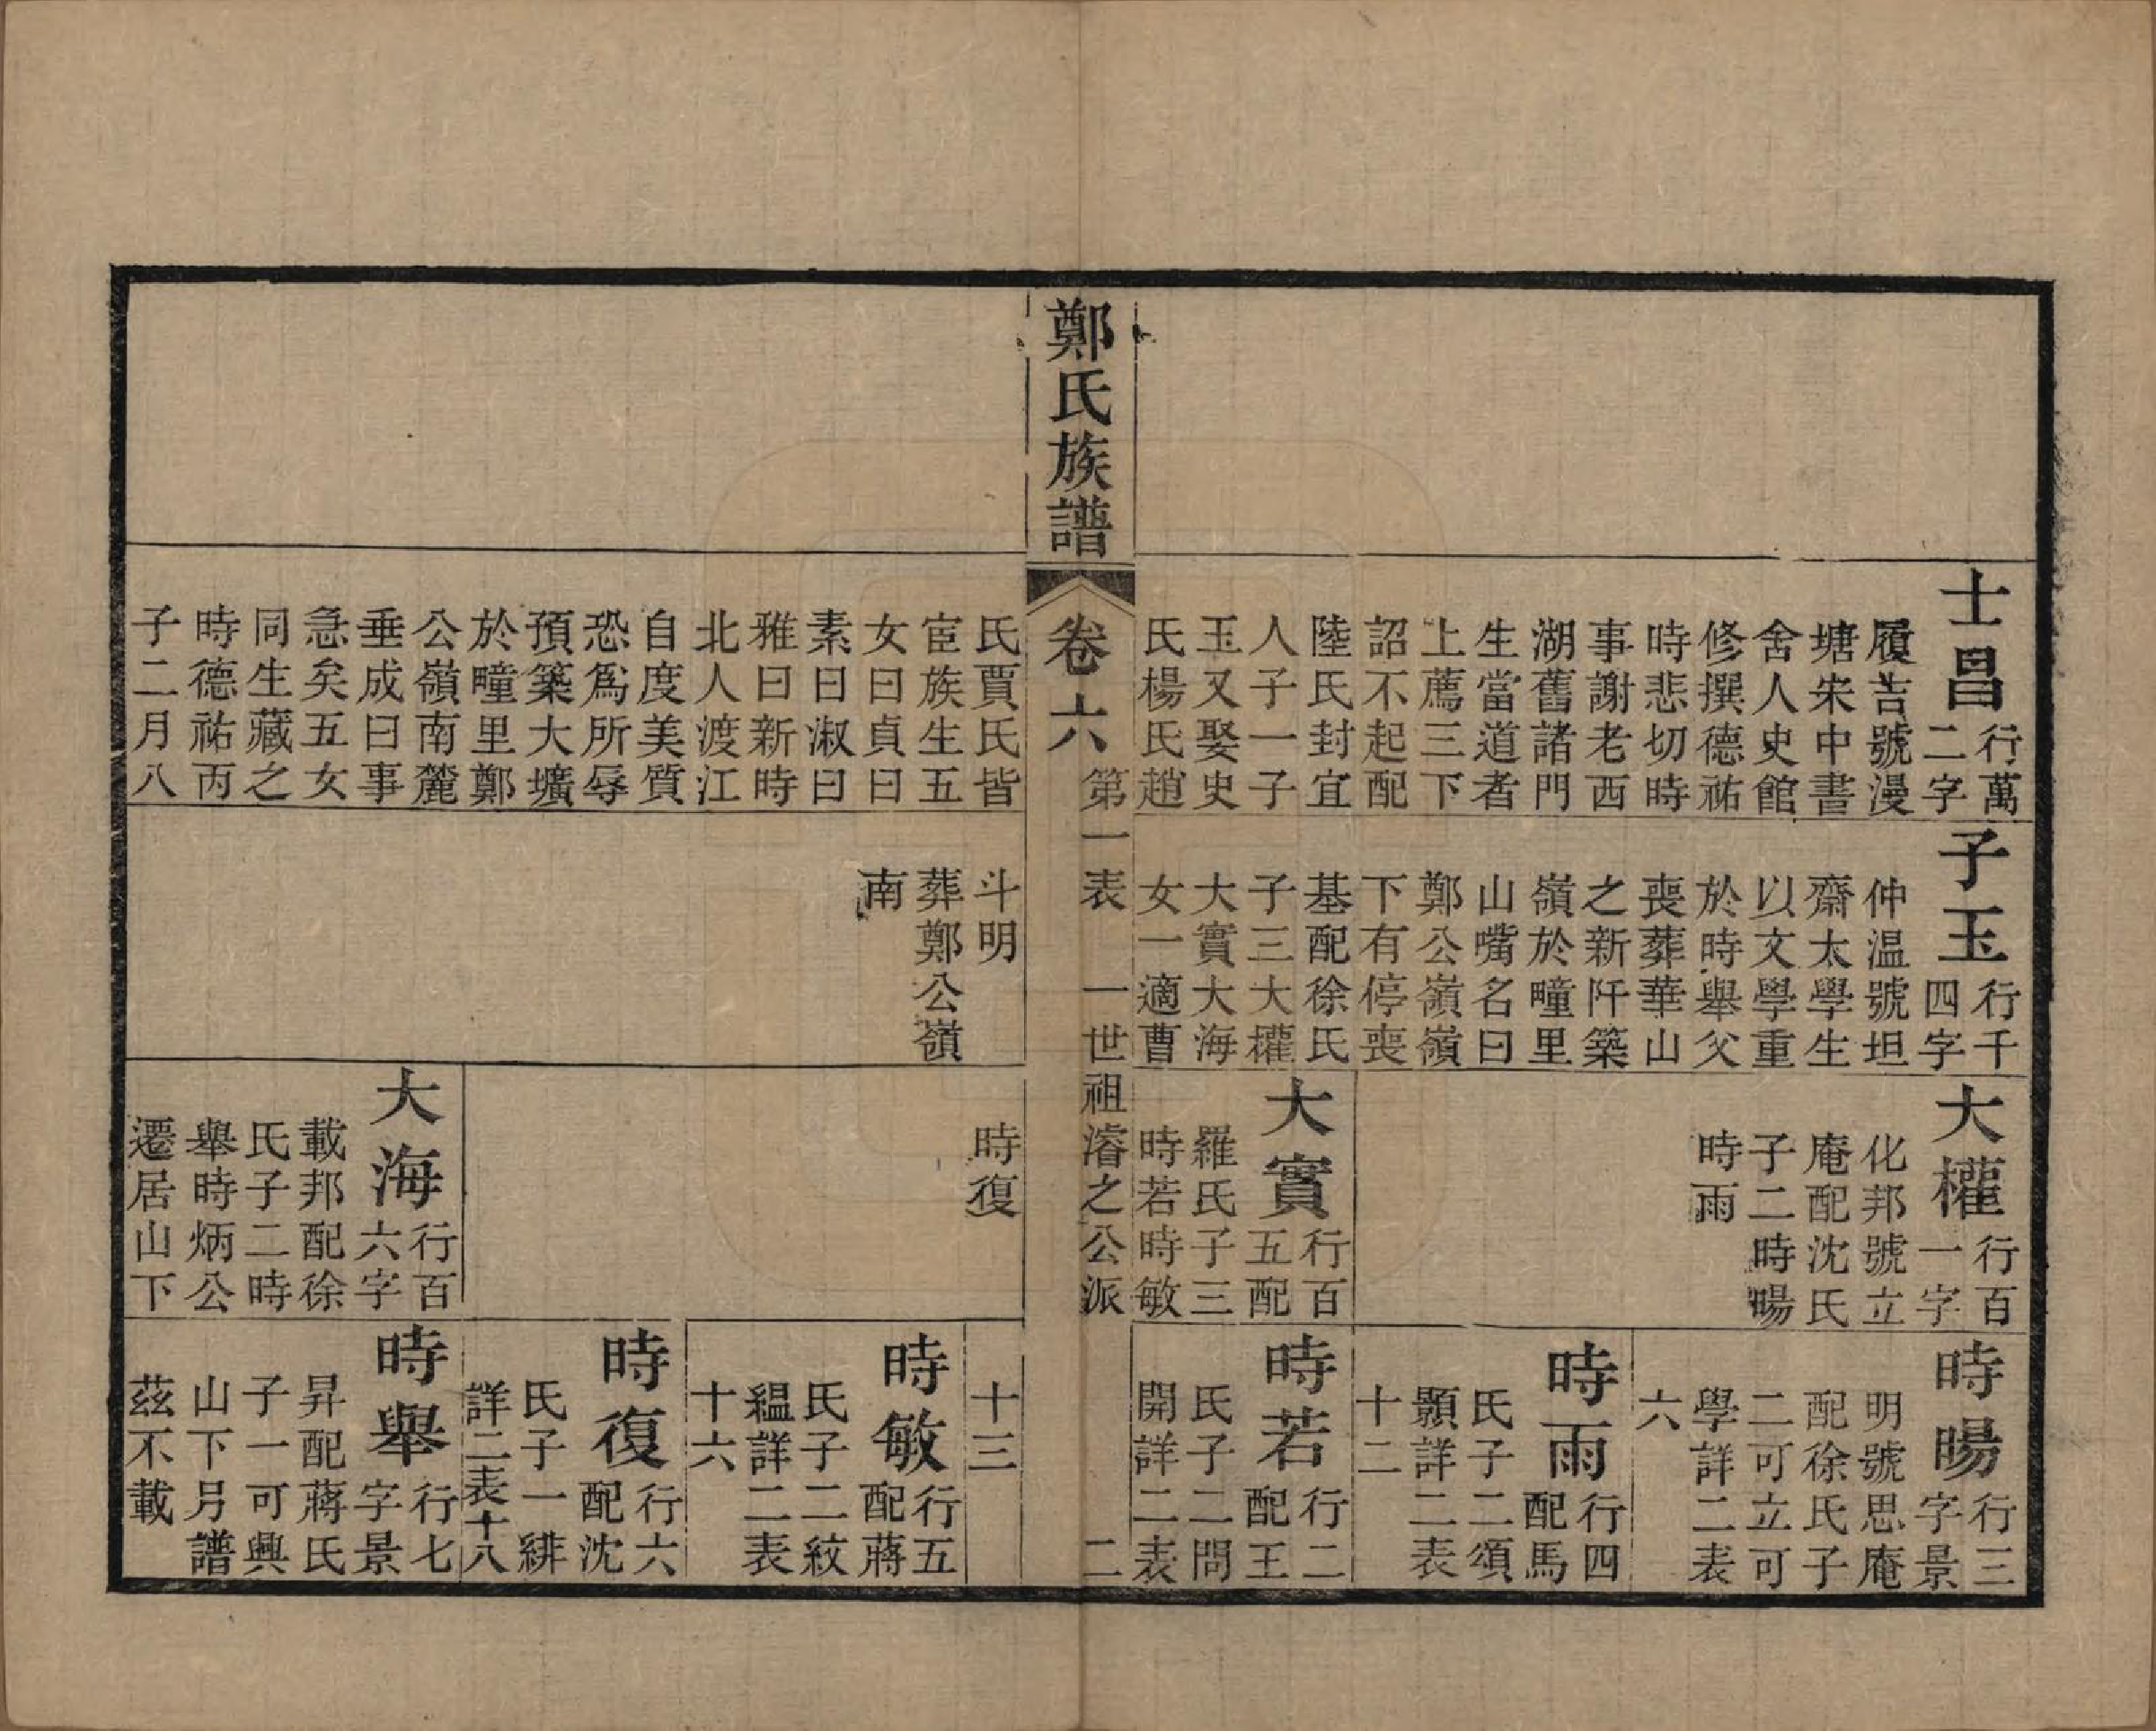 士昌
行萬
二字
履吉號漫
塘宋中書
舍人史館
修撰德祐
時悲切時
事謝老西
湖舊諸門
生當道者
上薦三下
詔不起配
陸氏封宜
人子一子
玉又娶史
氏楊氏趙
子玉
行千
四字
仲温號坦
齋太學生
以文學重
於時舉父
喪葬華山
之新阡築
嶺於疃里
山嘴名曰
鄭公嶺嶺
下有停喪
基配徐氏
子三大權
大實大海
女一適曹
大權
行百
一字
化邦號立
庵配沈氏
子二時暘
時雨
大實
行百
五配
羅氏子三
時若時敏
時暘
行三
字景
明號思庵
配徐氏子
二可立可
學詳二表
六
時雨
行四
配馬
氏子二頌
顥詳二表
十二
時若
行二
配王
氏子二問
開詳二表
鄭氏族譜
卷六
第一表 一世祖濬之公派
二
氏賈氏皆
宦族生五
女曰貞曰
素曰淑曰
雅曰新時
北人渡江
自度美質
恐爲所辱
預築大壙
於疃里鄭
公嶺南麓
垂成曰事
急矣五女
同生藏之
時德祐丙
子二月八
斗明
葬鄭公嶺
南
時復
大海
行百
六字
載邦配徐
氏子二時
舉時炳公
遷居山下
十三
時敏
行五
配蔣
氏子二紋
緼詳二表
十六
時復
行六
配沈
氏子一緋
詳二表十八
時舉
行七
字景
昇配蔣氏
子一可興
山下另譜
茲不載